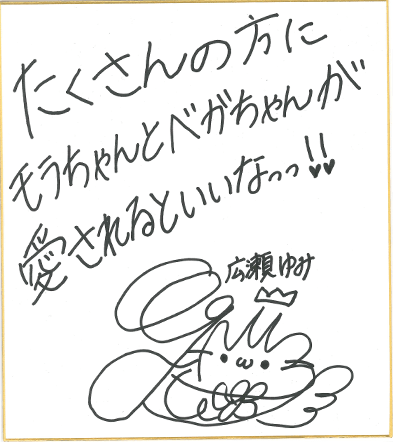 たくさんの方に
モラちゃんとベガちゃんが
愛されるといいなっっ!!
広瀬ゆみ